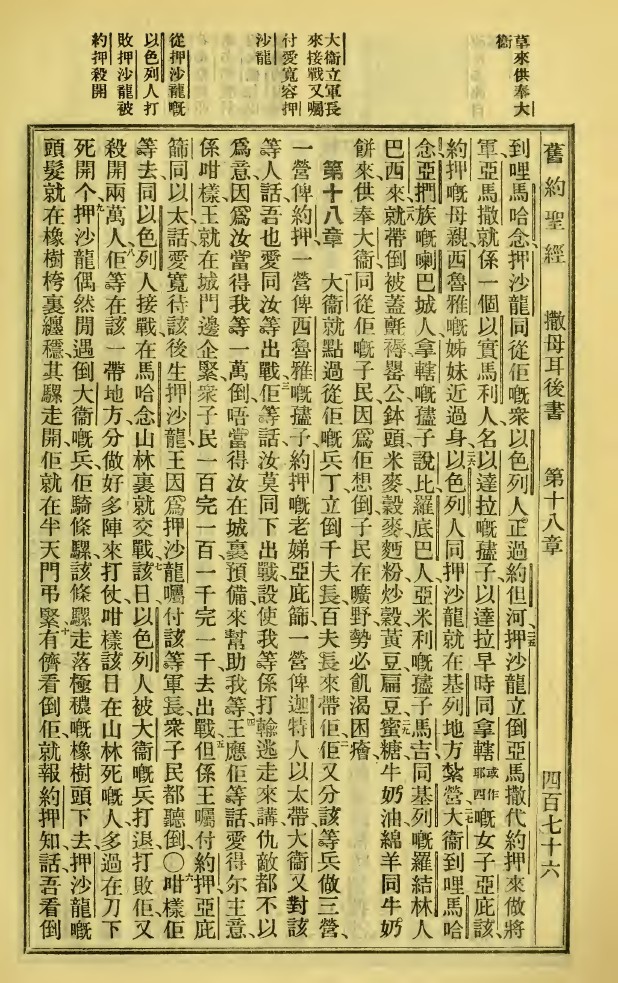 草來供奉大
衞
大衞立軍長
來接戰又囑
付愛寬容押
沙龍
從押沙龍嘅
以色列人打
敗押沙龍被
約押殺開
舊約聖經 撒母耳後書 第十八章 四百七十六
到哩馬哈念押沙龍同從佢嘅衆以色列人正過約但河二五押沙龍立倒亞馬撒代約押來做將
軍亞馬撒就係一個以實馬利人名以達拉嘅孻子以達拉早時同拿轄或作耶西嘅女子亞庇該
約押嘅母親西魯雅嘅姊妹近過身二六以色列人同押沙龍就在基列地方紮營二七大衞到哩馬哈
念亞捫族嘅喇巴城人拿轄嘅孻子說比羅底巴人亞米利嘅孻子馬吉同基列嘅羅結林人
巴西來二八就帶倒被蓋氈褥罌公鉢頭米麥穀麥麵粉炒穀黃豆扁豆二九蜜糖牛奶油綿羊同牛奶
餅來供奉大衞同從佢嘅子民因爲佢想倒子民在曠野勢必飢渴困𤸁
第十八章 一大衞就點過從佢嘅兵丁立倒千夫長百夫長來帶佢二佢又分該等兵做三營
一營俾約押一營俾西魯雅嘅孻子約押嘅老娣亞庇篩一營俾迦特人以太帶大衞又對該
等人話吾也愛同汝等出戰三佢等話汝莫同下出戰設使我等係打輸逃走來講仇敵都不以
爲意因爲汝當得我等一萬倒唔當得汝在城裏預備來幫助我等四王應佢等話愛得尔主意
係咁樣王就在城門邊企緊衆子民一百完一百一千完一千去出戰五但係王囑付約押亞庇
篩同以太話愛寬待該後生押沙龍王因爲押沙龍囑付該等軍長衆子民都聽倒〇六咁樣佢
等去同以色列人接戰在馬哈念山林裏就交戰七該日以色列人被大衞嘅兵打退打敗佢又
殺開兩萬人八佢等在該一帶地方分做好多陣來打仗咁樣該日在山林死嘅人多過在刀下
死開个九押沙龍偶然閒遇倒大衞嘅兵佢騎條騾該條騾走落極穠嘅橡樹頭下去押沙龍嘅
頭髮就在橡樹桍裏纏穩其騾走開佢就在半天門弔緊十有儕看倒佢就報約押知話吾看倒